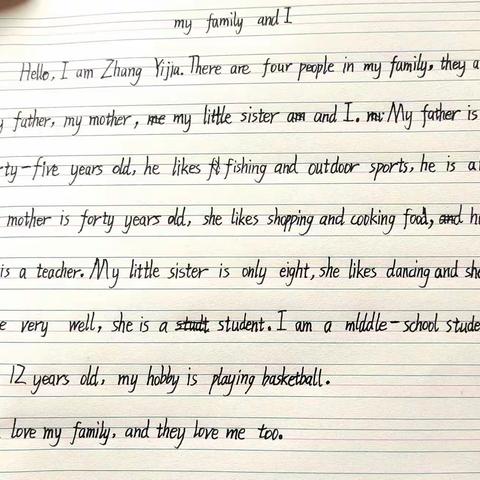 my family and I
Hello, I am Zhang Yijia. There are four people in my family, they a
y father, my mother, me my little sister am and I. mi My father is
ty-five years old, he likes fi fishing and outdoor sports, he is a
mother is forty years old, she likes shopping and cooking food, and h
is a teacher. My little sister is only eight, she likes dancing and sh
e very well, she is a studt student. I am a middle-school stude
12 years old, my hobby is playing basketball.
love my family, and they love me too.